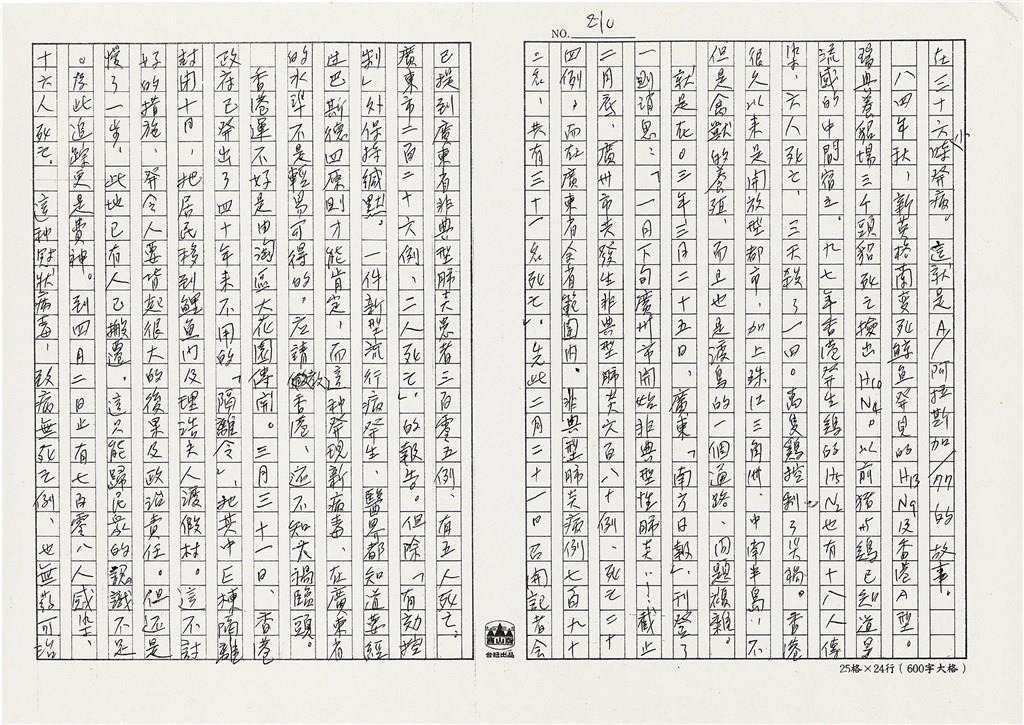 210
NO.
在三十六小時發病。這就是A/阿拉斯加/77的故事。
八四年秋,新英格蘭變死鯨魚發見的H13N9及香港A型。
瑞典養貂場三千頭貂死亡撿出H10N4。以前猪与鷄已知道是
流感的中間宿主。九七年香港發生鷄的H5N1也有十八人傳
染、六人死亡、三天殺了一四〇萬隻鷄控制了災禍。香港
很久以來是開放型都市,加上珠江三角州、中南半島…不
但是禽獸的養殖,而且也是渡鳥的一個通路、問題複雜。
就是在〇三年三月二十五日,廣東「南方日報」刊登了
一則消息:「一月下旬廣州市開始非典型性肺炎……截止
二月底,廣州市共發生非典型肺炎六百八十例、死亡二十
四例。而在廣東省全省範圍內。非典型肺炎病例七百九十
二名、共有三十一名死亡」。先此二月二十一日召開記者會
25格×24行(600字大格)
台經出品
已提到廣東省非典型肺炎患者三百零五例、有五人死亡。
廣東市二百二十六例、二人死亡」的報告。但除「有効控
制」外保持緘默。一件新型流行病發生,醫界都知道要經
過巴斯德四原則才能肯定,而這種發現新病毒、在廣東有
的水準不是輕易可得的。应請教香港,还不知大禍臨頭。
香港運不好是由淘大花園傳開。三月三十一日、香港
政府已發出了四十年来不用的「隔離令」把其中E棟隔離
封閉十日,把居民移到鯉魚門及理浩夫人渡假村。這不討
好的措施,發令人要背起很大的後果及政治責任。但还是
慢了一步,此地已有人已搬遷。這只能歸民眾的認識不足
。為此追踪更是費神。到四月二日止有七百零八人感染、
十六人死亡。這種冠狀病毒,致病無死亡例、也無药可治